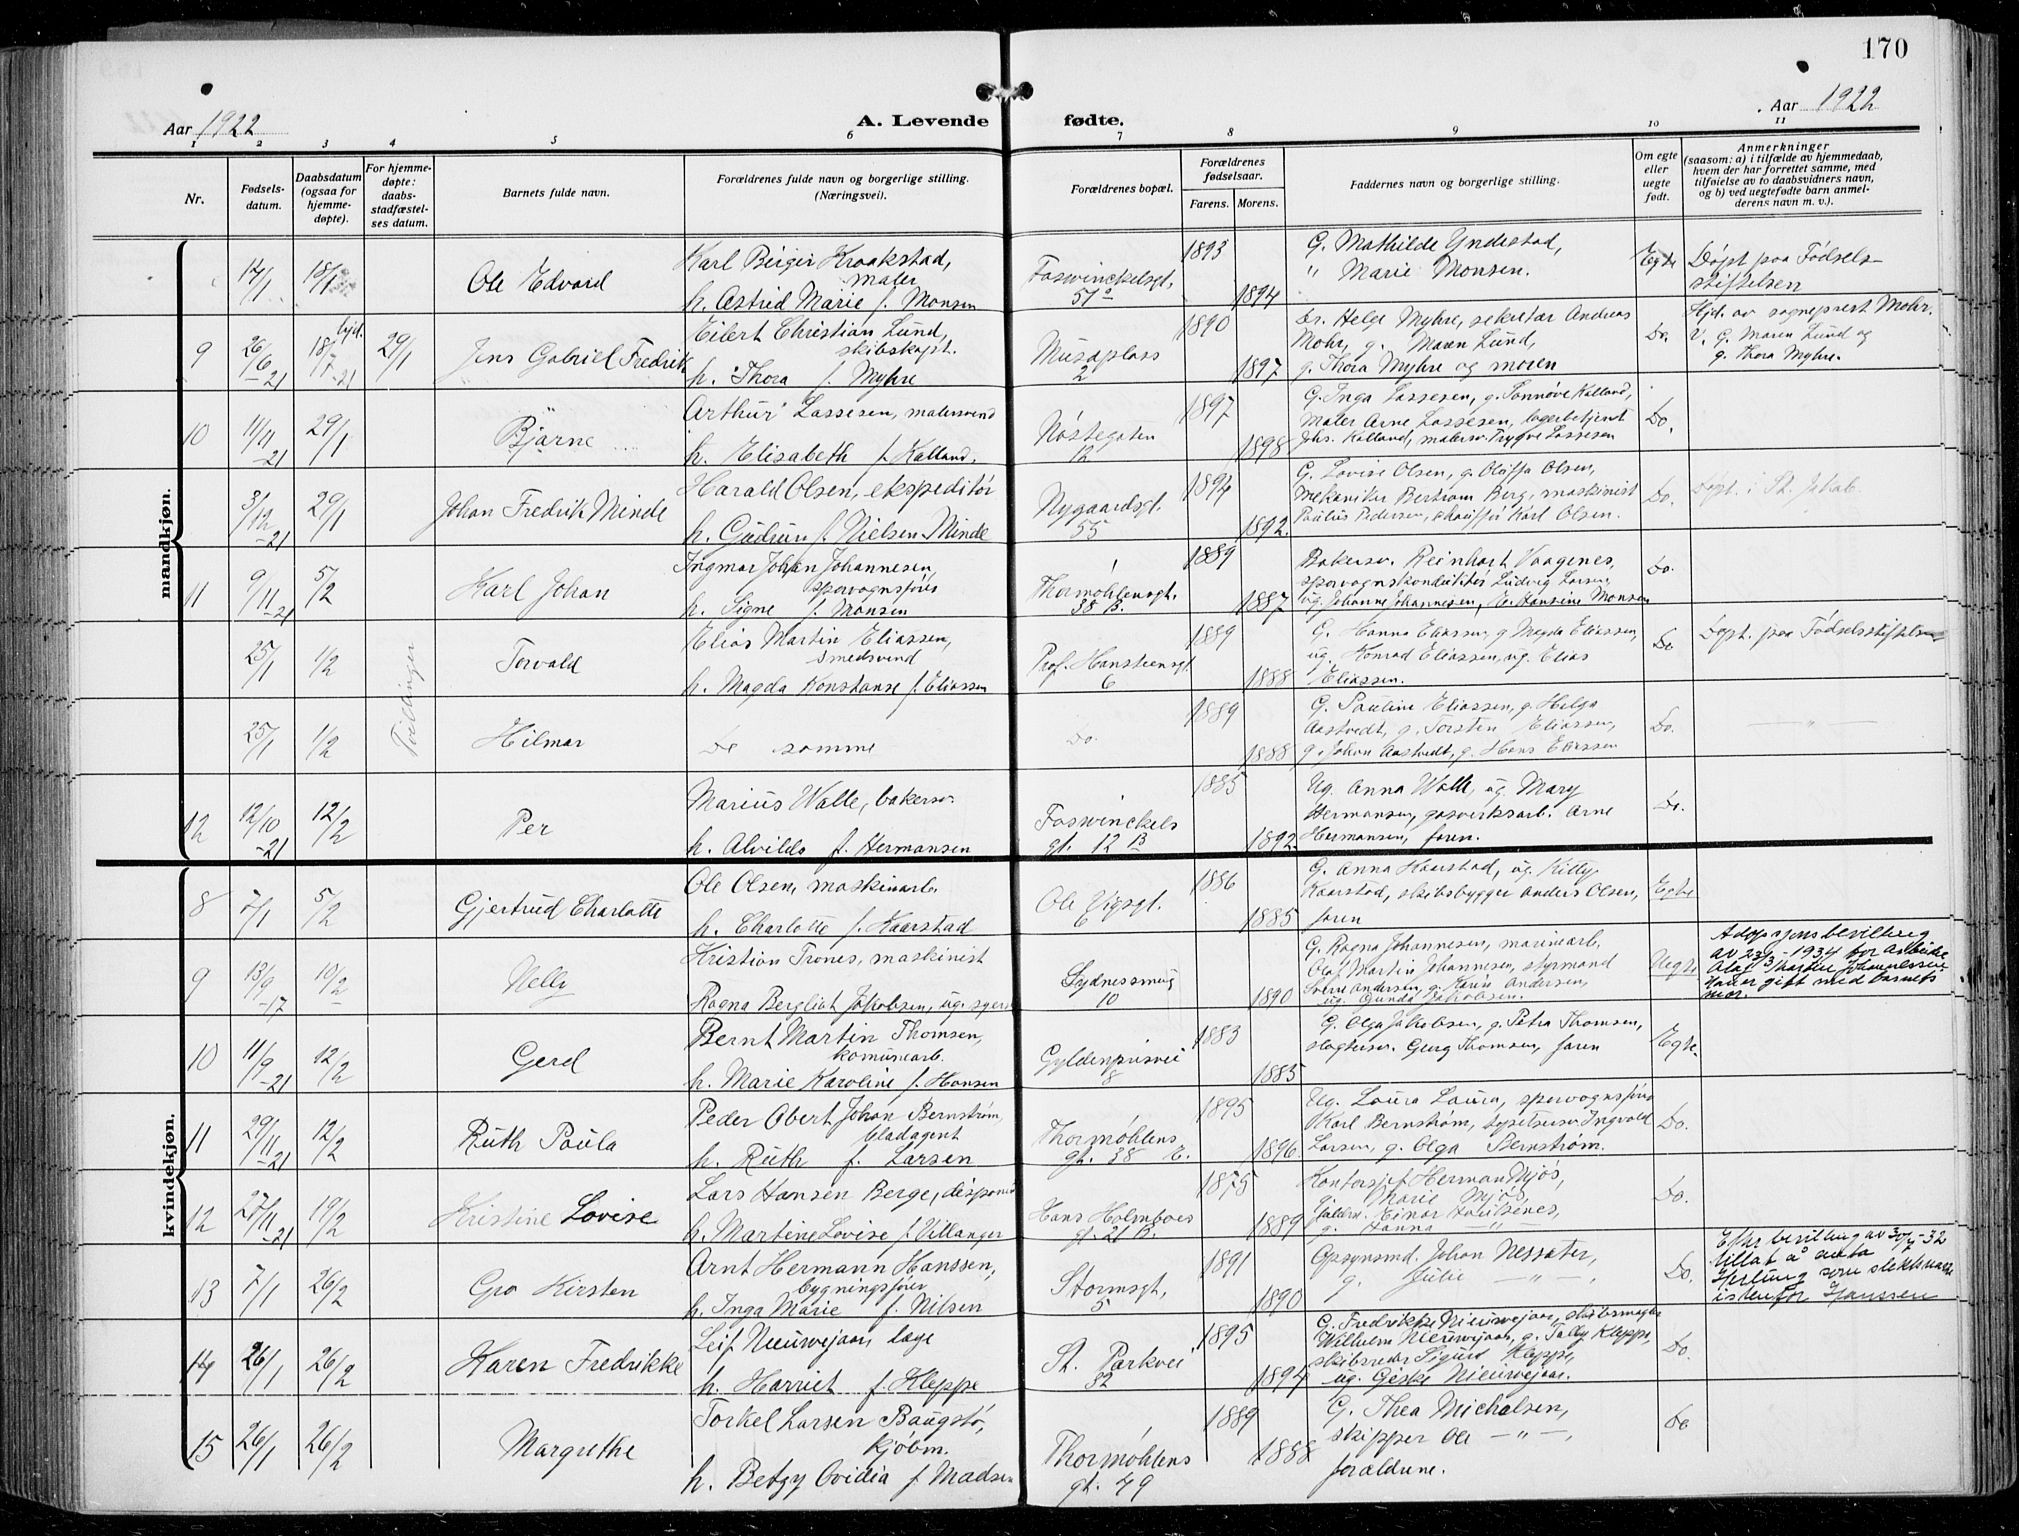 170
Aar 1922
A. Levende
fødte.
Aar 1922
1 2 3 4 5 6 7 8 9 10 11
Nr.
Fødsels-
datum.
Daabsdatum
(ogsaa for
hjemme-
døpte).
For hjemme-
døpte:
daabs-
stadfæstel-
ses datum.
Barnets fulde navn.
Forældrenes fulde navn og borgerlige stilling.
(Næringsvei).
Forældrenes bopæl.
Forældrenes
fødselsaar.
Farens. Morens.
Faddernes navn og borgerlige stilling.
Om egte
eller
uegte
født.
Anmerkninger
(saasom: a) i tilfælde av hjemmedaab,
hvem der har forrettet samme, med
tilføielse av to daabsvidners navn,
og b) ved uegtefødte barn anmel-
derens navn m. v.).
mandkjøn.
14/1 18/1 Ole Edvard
Karl Birger Kraakstad,
maler
h. Astrid Marie f. Monsen
Foswinckelsgt.
57a
1893
1894
G. Mathilde Yndestad,
" Marie Monsen.
Egte
Døpt paa Fødsels-
stiftelsen
9 26/6-21 hjd. 18/7-21 29/1 Jens Gabriel Fredrik
Eilert Christian Lund,
skibskapt.
h. Thora f. Myhre
Musæplass
2
1890
1897
Dr. Helge Myhre, sekretær Andreas
Mohr, g. Maren Lund,
g. Thora Myhre og moren
Do.
Hjd. av sogneprest Mohr.
V. G. Maren Lund og
g. Thora Myhre.
10 11/11-21 29/1 Bjarne
Arthur Lassesen, malersvend
h. Elisabeth f. Kalland.
Nøstegaten
12
1897
1898
G. Inga Lassesen, g. Sønnøve Kalland,
Maler Arne Lassesen, lagerbetjent
Jhs. Kalland, malersv. Trygve Lassesen
Do.
3/12-21 29/1 Johan Fredrik Minde
Harald Olsen, ekspeditør
h. Gudrun f. Nielsen Minde
Nygaardsgt.
55
1894
1892.
G. Lovise Olsen, g. Oluffa Olsen,
Mekaniker Bertram Berg, maskinist
Paulus Pedersen, chauffør Karl Olsen.
Do.
Døpt. i St. Jakob.
11 9/11-21 5/2 Karl Johan
Ingmar Johan Johannesen,
sporvognsfører
h. Signe f. Monsen
Thormøhlensgt.
38 B.
1889
1887
Bakersv. Reinhart Vaagenes,
sporvognskonduktør Ludvig Larsen,
ug. Johanne Johannesen, Hansine Monsen
Do.
25/1 1/2 Tvillinger Torvald
Elias Martin Eliassen,
Smedsvend
h. Magda Konstanse f. Eliassen
Prof. Hansteensgt.
6
1889
1888
G. Hanna Eliassen, g Magda Eliassen,
ug. Konrad Eliassen, ug. Elias
Eliassen.
Do
Døpt. paa Fødselsstiftelsen
25/1 1/2 Hilmar
De samme
Do.
1889
1888
G. Pauline Eliassen, g. Helga
Aastvedt, g. Torsten Eliassen,
g. Johan Aastvedt, g. Hans Eliassen
Do.
— " —
12 12/10-21 12/2 Per
Marius Walle, bakersv.
h. Alvilda f. Hermansen
Foswinckels
gt. 12 B
1885
1892.
Ug. Anna Walle, ug. Mary
Hermansen, gasverksarb. Arne
Hermansen, faren.
Do.
kvindekjøn.
8 7/1 5/2 Gjertrud Charlotte
Ole Olsen, maskinarb.
h. Charlotte f. Kaarstad
Ole Vigsgt.
6
1886
1885
G. Anna Kaarstad, ug. Kitty
Kaarstad, skibsbygger Anders Olsen,
faren
Egte
9 13/9-17 10/2 Nelly
Kristian Trones, maskinist
Ragna Bergliot Jakobsen, ug. syerske
Sydnessmug
10
1890
G. Ragna Johannesen, marinearb.
Olaf Martin Johannesen, styrmand
Sverre Andersen, g. Karen Andersen,
ug. Gunda Jakobsen.
Uegte
Adopsjonsbevilling
av 23/3-1934 for arbeider
Olaf Martin Johannessen
som er gift med barnets
mor.
10 11/9-21 12/2 Gerd
Bernt Martin Thomsen,
komunearb.
h. Marie Karoline f. Hansen
Gyldenprisvei
8
1883
1885
G. Olga Jakobsen, g. Petra Thomsen,
slagtersv. Georg Thomsen, faren
Egte.
11 29/11-21 12/2 Ruth Paula
Peder Obert Johan Bernstrøm,
bladagent
h. Ruth f. Larsen
Thormøhlens
gt. 38 E.
1895
1896
Ug. Laura Laura, sporvognsfører
Karl Bernstrøm, typetsersv. Ingvald
Larsen, g. Olga Bernstrøm.
Do.
12 27/11-21 19/2 Kristine Lovise
Lars Hansen Berge, disponent
h. Martine Lovise f. Villanger
Hans Holmboes
gt. 21 B.
1875
1889
Kontorsjef Herman Mjøs,
Marie Mjøs,
Einar
g. Hanna — " —
Do.
13 7/1 26/2 Gro Kirsten
Arnt Hermann Hanssen,
bygningsfører
h. Inga Marie f. Nilsen
Stormsgt.
5
1891
1890
Opsynsmd. Johan Nessæter,
g. Julie — " —,
Do.
Efter bevilling av 30/7-32
tillat å anta
Hertung som slektsnavn
istenfor Hanssen
14 26/1 26/2 Karen Fredrikke
Leif Nieuwejaar, læge
h. Harriet f. Kleppe
St. Parkvei
32
1895
1894
G. Fredrikke Nieuwejaar, skibsmegler
Wilhelm Nieuwejaar, g. Tally Kleppe,
skibsreder Sigurd Kleppe,
ug. Geske Nieuwejaar.
Do.
15 26/1 26/2 Margrethe
Torkel Larsen Baugstø,
kjøbm.
h. Betzy Ovidia f. Madsen
Thormøhlens
gt. 79
1889
1888
G. Thea Michalsen,
skipper Ole — " —,
forældrene.
Do